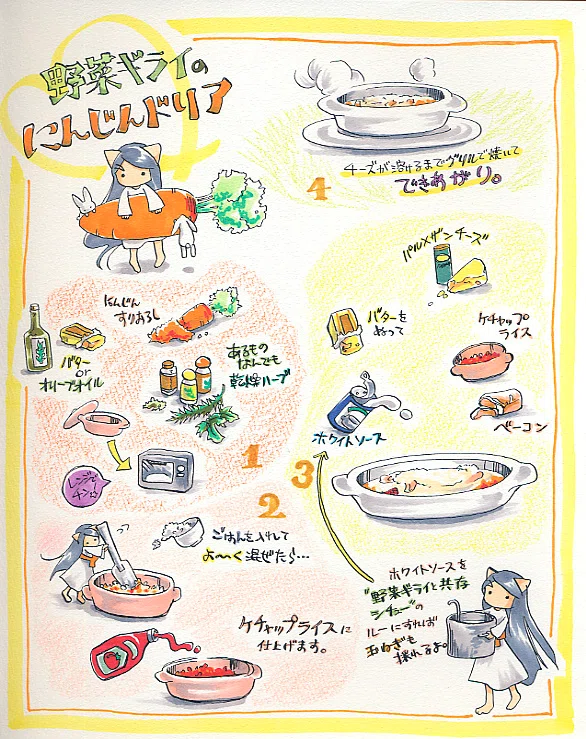 野菜ギライの
にんじんドリア
にんじん
すりおろし
バター
or
オリーブオイル
あるもの
なんでも
乾燥ハーブ
レンジで
チン☆
1
2
ごはんを入れて
よ〜〜く混ぜたら…
ケチャップライスに
仕上げます。
3
パルメザンチーズ
バターを
ぬって
ケチャップ
ライス
ホワイトソース
ベーコン
ホワイトソースを
"野菜ギライと共存
シチュー"の
ルーにすれば
玉ねぎも
採れるよ。
4
チーズが溶けるまでグリルで焼いて
できあがり。